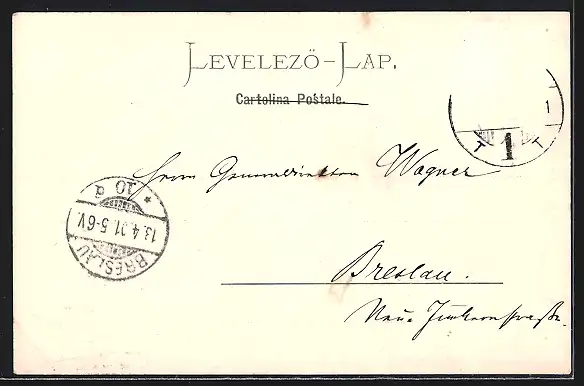 LEVELEZŐ-LAP.
Cartolina Postale.
1
T 1 T
Herrn Generaldirektor Wagner
10 a
13.4.01.5-6V.
BRESLAU
Breslau.
Neue Junkernstraße.